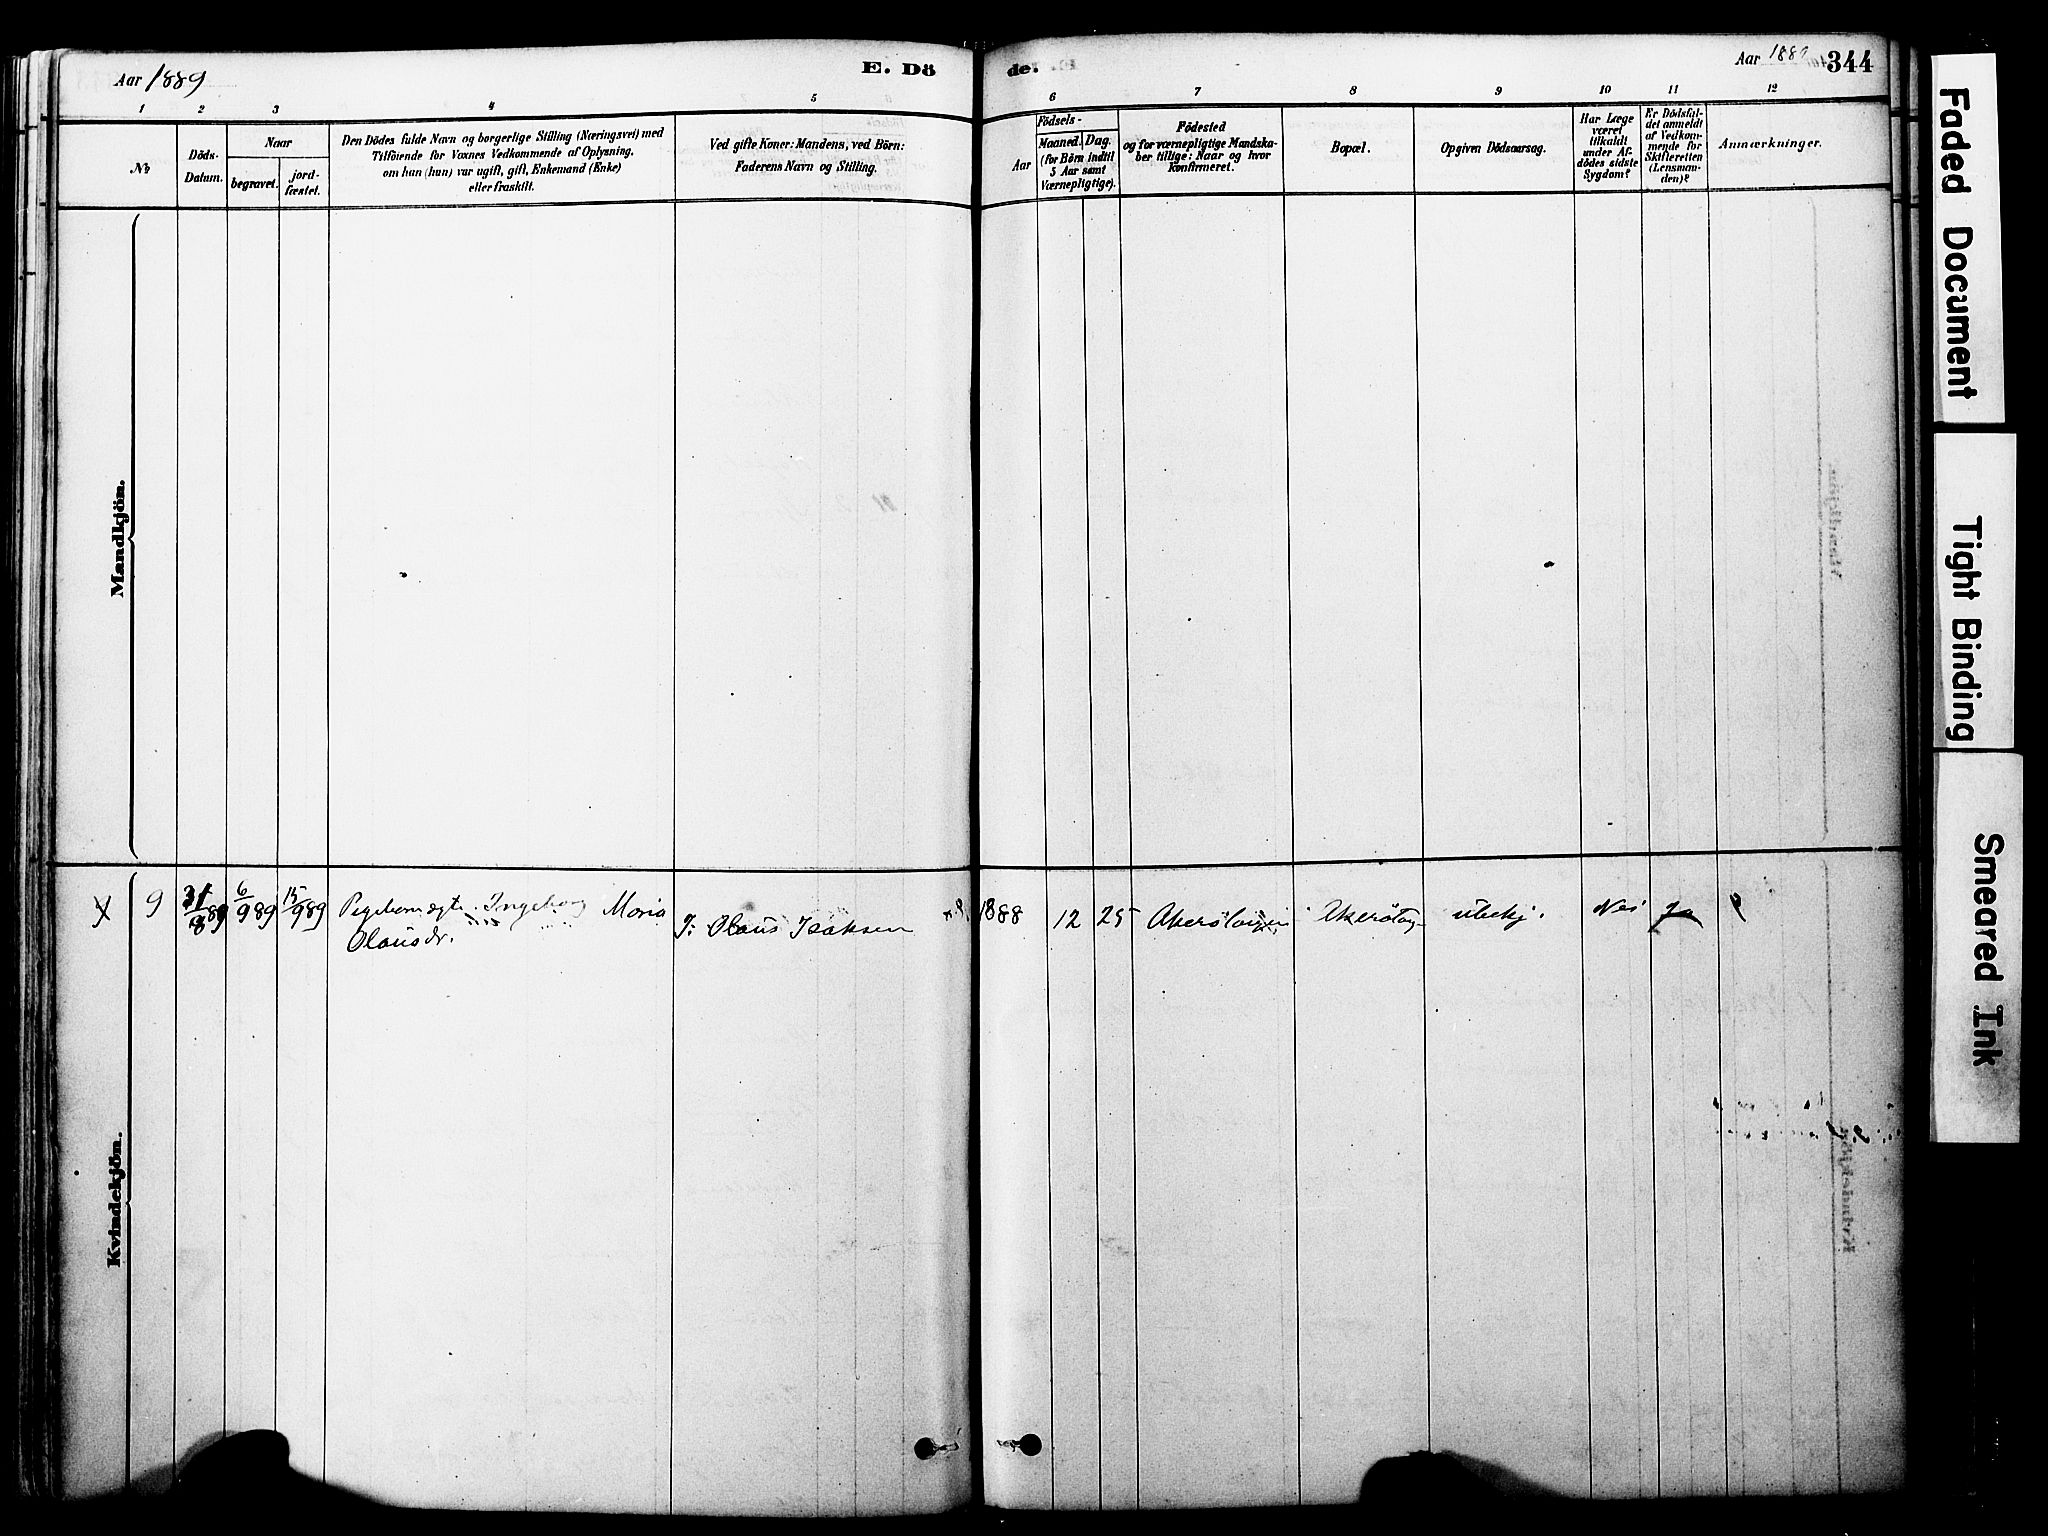 Aar 1889
E. Dö
de.
Aar 1889
344
1 2 3 4 5 6 7 8 9 10 11 12
No
Döds-
Datum.
Naar
begravet.
jord-
fæstet.
Den Dödes fulde Navn og borgerlige Stilling (Næringsvei) med
Tilföiende for Voxnes Vedkommende af Oplysning,
om han (hun) var ugift, gift, Enkemand (Enke)
eller fraskilt.
Ved gifte Koner: Mandens, ved Börn:
Faderens Navn og Stilling.
Födsels-
Aar
Maaned.
Dag.
(for Börn indtil
5 Aar samt
Værnepligtige).
Födested
og for værnepligtige Mandska-
ber tillige: Naar og hvor
konfirmeret.
Bopæl.
Opgiven Dödsaarsag.
Har Læge
været
tilkaldt
under Af-
dödes sidste
Sygdom?
Er Dödsfal-
det anmeldt
af Vedkom-
mende for
Skifteretten
(Lensman-
den)?
Anmærkninger.
Mandkjön.
Kvindekjön.
9 31/8 89 6/9 89 15/9 89 Pigebarn ægte Ingeborg Maria
Olausdr.
F: Olaus Isaksen
1888 12 25 ubekj. Nei Ja
Faded Document
Tight Binding
Smeared Ink